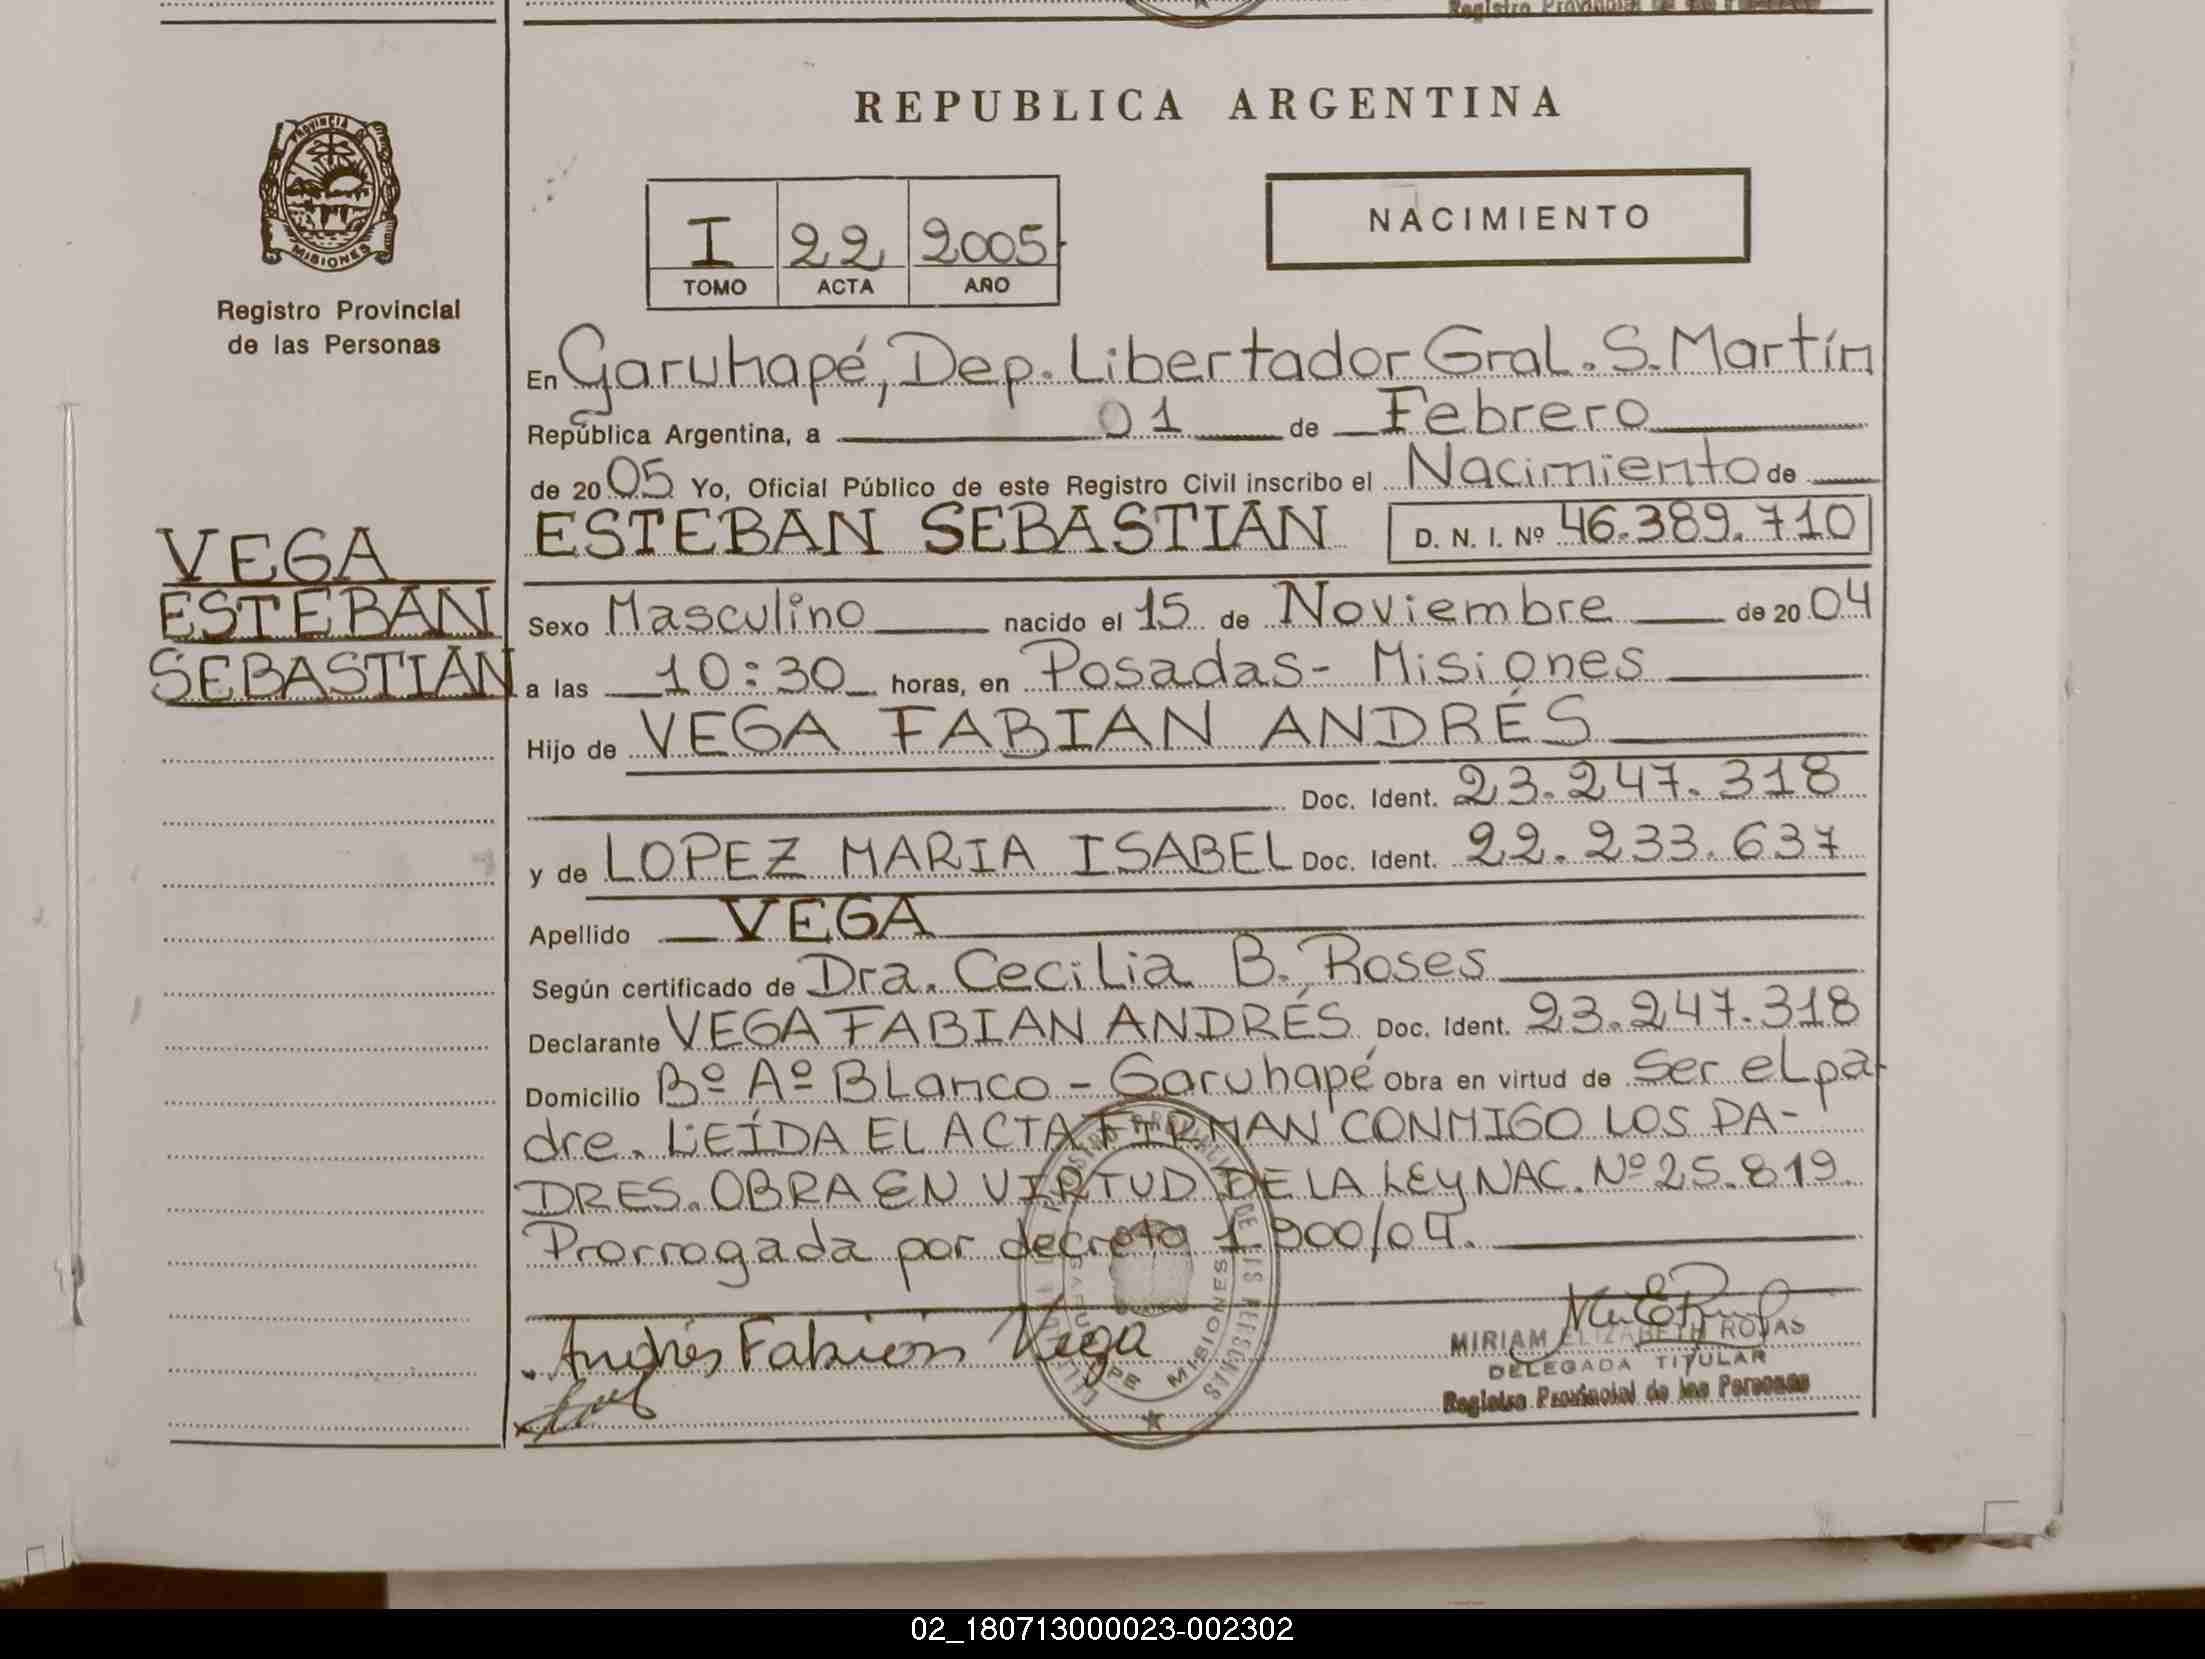 Registro Provincial de las Personas
REPUBLICA ARGENTINA
PROVINCIA DE
MISIONES
Registro Provincial
de las Personas
I 22 2005
TOMO ACTA AÑO
NACIMIENTO
VEGA
ESTEBAN
SEBASTIAN
En Garuhapé, Dep. Libertador Gral. S. Martín
República Argentina, a 01 de Febrero
de 2005 Yo, Oficial Público de este Registro Civil inscribo el Nacimiento de
ESTEBAN SEBASTIAN D. N. I. Nº 46.389.710
Sexo Masculino nacido el 15 de Noviembre de 2004
a las 10:30 horas, en Posadas - Misiones
Hijo de VEGA FABIAN ANDRÉS
Doc. Ident. 23.247.318
y de LOPEZ MARIA ISABEL Doc. Ident. 22.233.637
Apellido VEGA
Según certificado de Dra. Cecilia B. Roses
Declarante VEGA FABIAN ANDRÉS Doc. Ident. 23.247.318
Domicilio Bº Aº Blanco - Garuhapé Obra en virtud de ser el pa-
dre. LEÍDA EL ACTA FIRMAN CONMIGO LOS PA-
DRES. OBRA EN VIRTUD DE LA LEY NAC. Nº 25.819.
Prorrogada por decreto 1.900/04.
Andrés Fabián Vega
MIRIAM ELIZABETH ROJAS
DELEGADA TITULAR
Registro Provincial de las Personas
02_180713000023-002302